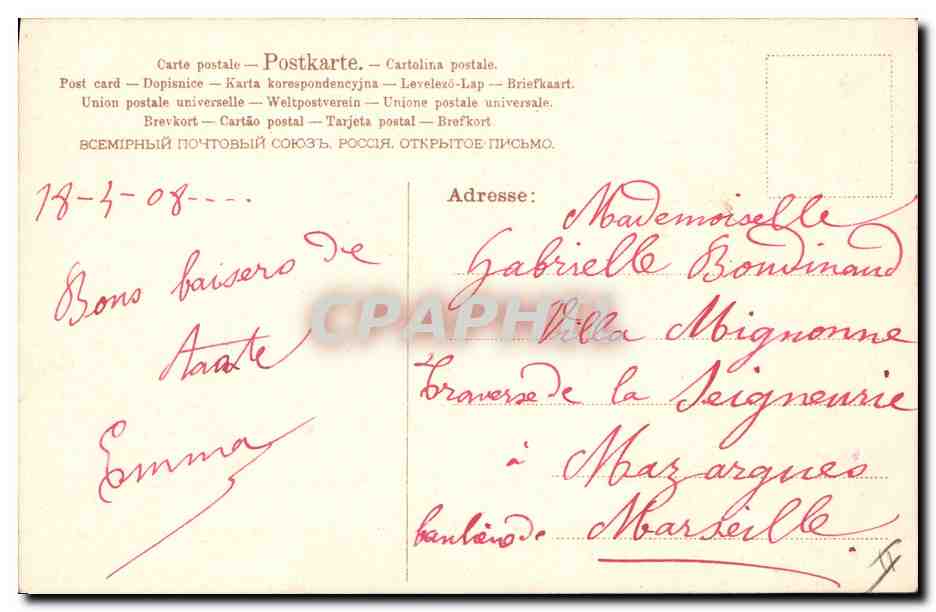 Carte postale — Postkarte. — Cartolina postale.
Post card — Dopisnice — Karta korespondencyjna — Levelező-Lap — Briefkaart.
Union postale universelle — Weltpostverein — Unione postale universale.
Brevkort — Cartão postal — Tarjeta postal — Brefkort
ВСЕМІРНЫЙ ПОЧТОВЫЙ СОЮЗЪ. РОССІЯ. ОТКРЫТОЕ ПИСЬМО.
18-4-08----
Bons baisers de
tante
Emma
Adresse:
Mademoiselle
Gabrielle Bondinaud
Villa Mignonne
Traverse de la Seigneurie
à Mazargues
banlieue de Marseille
CPAPHIL